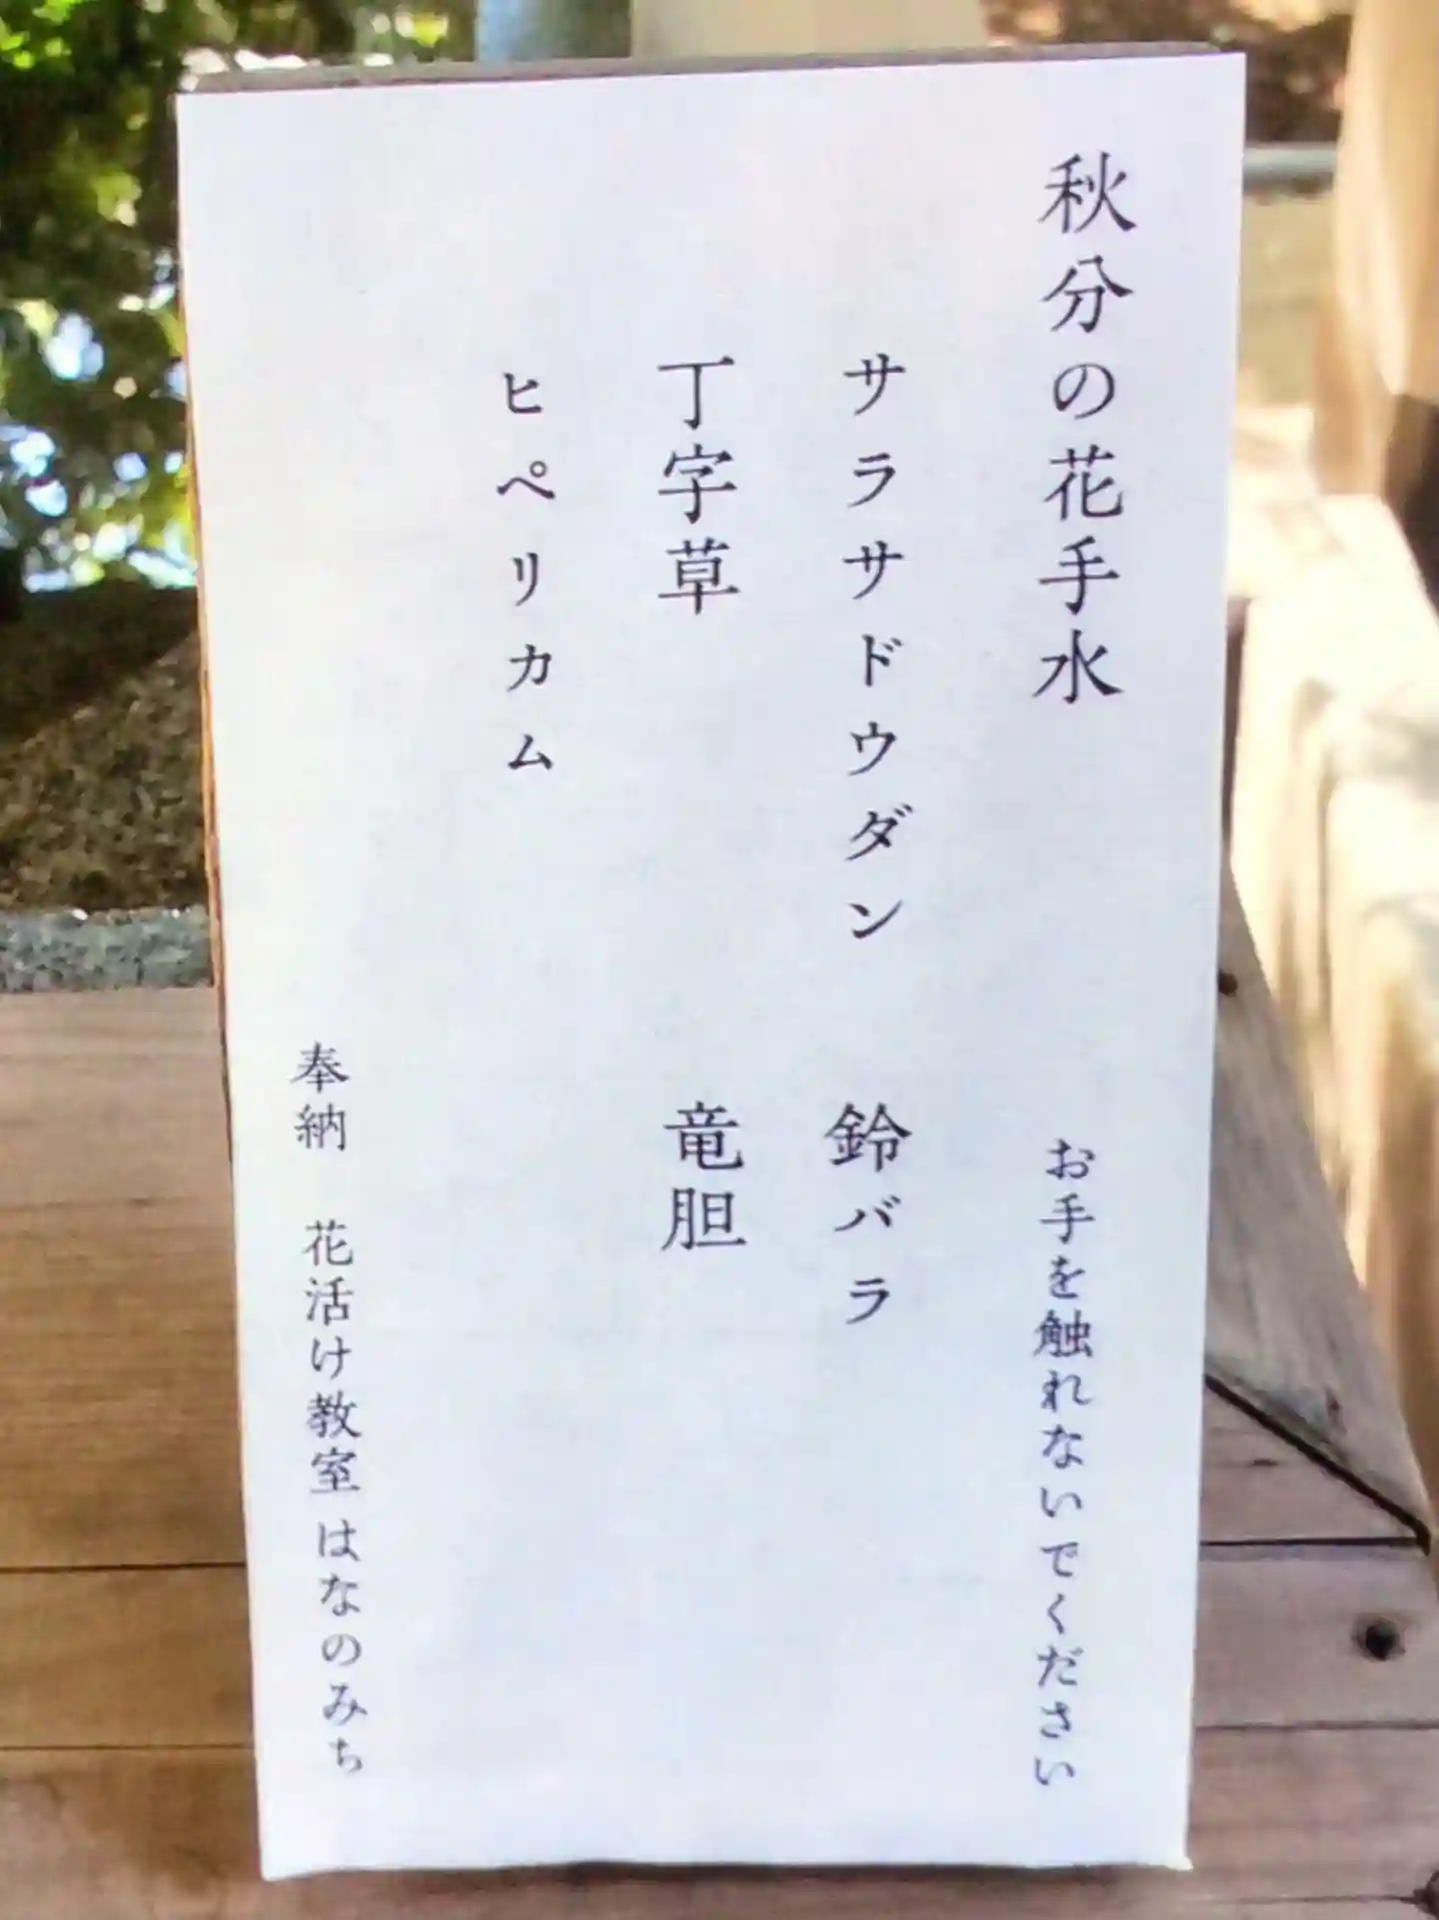 秋分の花手水　お手を触れないでください
サラサドウダン　鈴バラ
丁字草　竜胆
ヒペリカム
奉納　花活け教室はなのみち